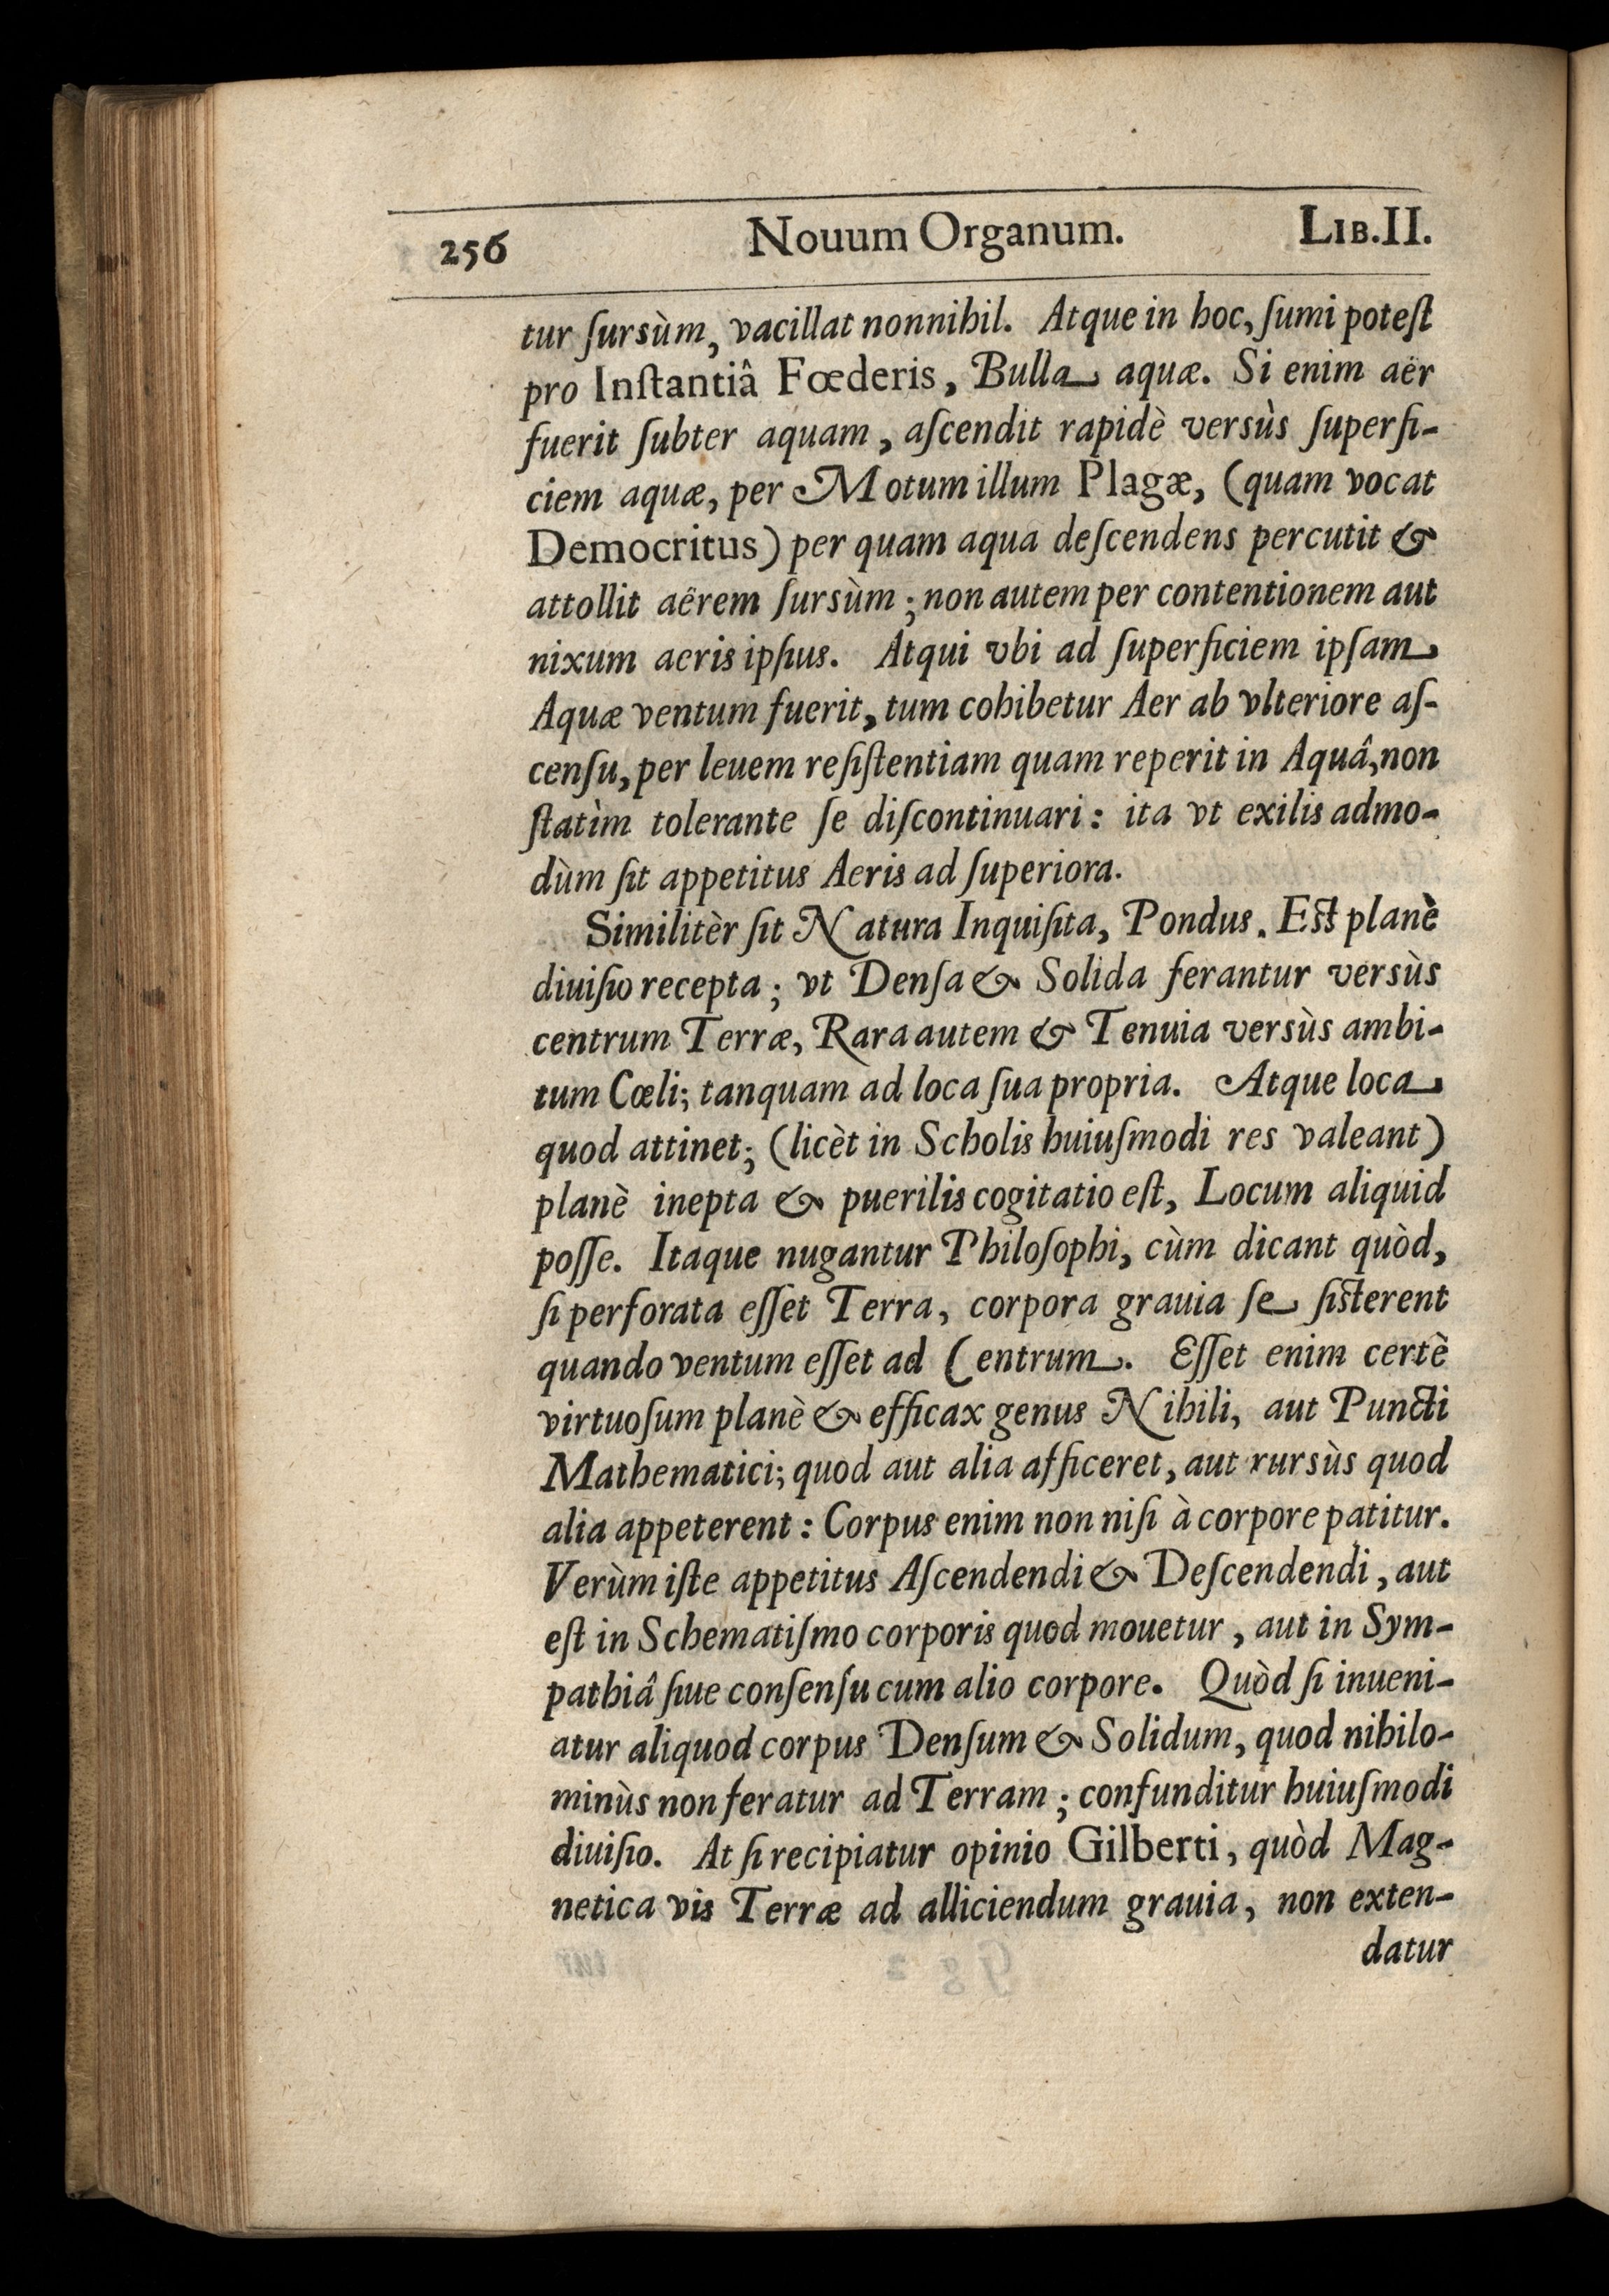 256 Nouum Organum. LIB.II.
tur ſursùm, vacillat nonnihil. Atque in hoc, ſumi poteſt
pro Inſtantiâ Fœderis, Bulla aquæ. Si enim aër
fuerit ſubter aquam, aſcendit rapidè versùs ſuperfi-
ciem aquæ, per Motum illum Plagæ, (quam vocat
Democritus) per quam aqua deſcendens percutit &
attollit aërem ſursùm; non autem per contentionem aut
nixum aeris ipſius. Atqui vbi ad ſuperficiem ipſam
Aquæ ventum fuerit, tum cohibetur Aer ab vlteriore aſ-
cenſu, per leuem reſiſtentiam quam reperit in Aquâ, non
ſtatìm tolerante ſe diſcontinuari: ita vt exilis admo-
dùm ſit appetitus Aeris ad ſuperiora.
Similitèr ſit Natura Inquiſita, Pondus. Eſt planè
diuiſio recepta; vt Denſa & Solida ferantur versùs
centrum Terræ, Rara autem & Tenuia versùs ambi-
tum Cœli; tanquam ad loca ſua propria. Atque loca
quod attinet; (licèt in Scholis huiuſmodi res valeant)
planè inepta & puerilis cogitatio eſt, Locum aliquid
poſſe. Itaque nugantur Philoſophi, cùm dicant quòd,
ſi perforata eſſet Terra, corpora grauia ſe ſiſterent
quando ventum eſſet ad Centrum. Eſſet enim certè
virtuoſum planè & efficax genus Nihili, aut Puncti
Mathematici; quod aut alia afficeret, aut rursùs quod
alia appeterent: Corpus enim non niſi à corpore patitur.
Verùm iſte appetitus Aſcendendi & Deſcendendi, aut
eſt in Schematiſmo corporis quod mouetur, aut in Sym-
pathiâ ſiue conſenſu cum alio corpore. Quòd ſi inueni-
atur aliquod corpus Denſum & Solidum, quod nihilo-
minùs non feratur ad Terram; confunditur huiuſmodi
diuiſio. At ſi recipiatur opinio Gilberti, quòd Mag-
netica vis Terræ ad alliciendum grauia, non exten-
datur